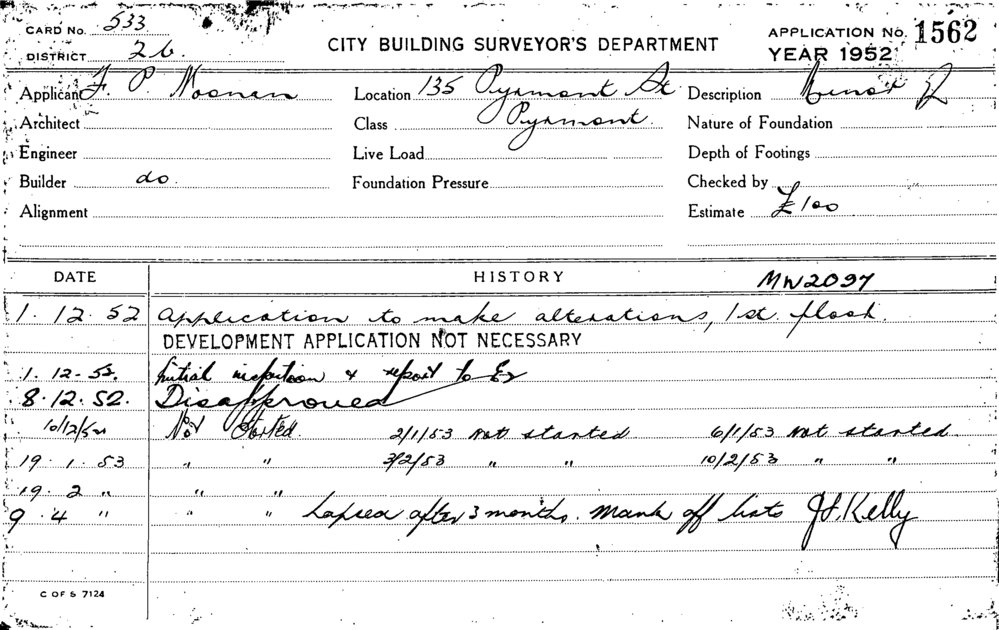 CARD No. 533
DISTRICT 26
CITY BUILDING SURVEYOR'S DEPARTMENT
APPLICATION No. 1562
YEAR 1952
Applicant F. P. Noonan
Location 135 Pyrmont St
Description Minor
Architect
Class Pyrmont.
Nature of Foundation
Engineer
Live Load
Depth of Footings
Builder do.
Foundation Pressure
Checked by
Alignment
Estimate £100
DATE HISTORY MW2097
1. 12. 52 Application to make alterations, 1st. floor.
DEVELOPMENT APPLICATION NOT NECESSARY
1. 12. 52. Initial inspection & report to
8. 12. 52. Disapproved
10/12/52 Not Started. 2/1/53 Not started. 6/1/53 Not started.
19. 1. 53 " " 3/2/53 " " 10/2/53 " "
19. 2 " " "
9. 4 " " " Lapsed after 3 months. Mark off lists J.L. Kelly
C OF S 7124